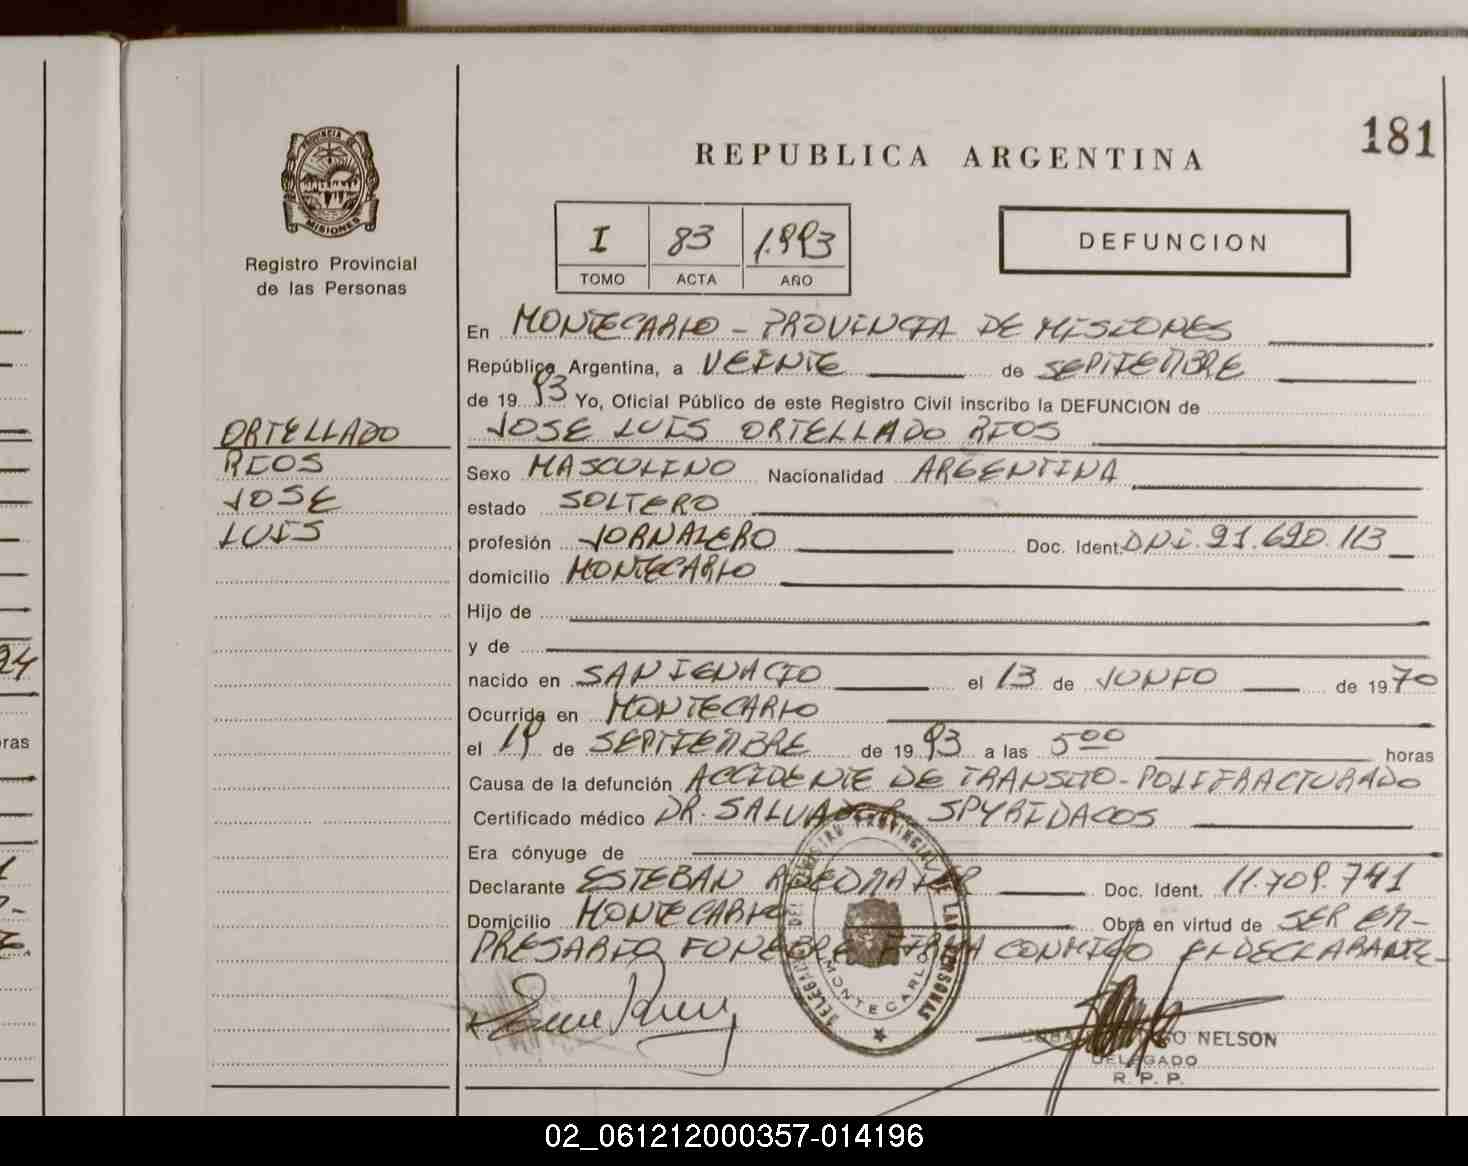 181
REPUBLICA ARGENTINA
PROVINCIA DE
MISIONES
Registro Provincial
de las Personas
I 83 1.993
TOMO ACTA AÑO
DEFUNCION
ORTELLADO
RIOS
JOSE
LUIS
En MONTECARLO - PROVINCIA DE MISIONES
República Argentina, a VEINTE de SEPTIEMBRE
de 1993 Yo, Oficial Público de este Registro Civil inscribo la DEFUNCION de
JOSE LUIS ORTELLADO RIOS
Sexo MASCULINO Nacionalidad ARGENTINA
estado SOLTERO
profesión JORNALERO Doc. Ident. DNI. 91.690.113
domicilio MONTECARLO
Hijo de
y de
nacido en SAN IGNACIO el 13 de JUNIO de 1970
Ocurrida en MONTECARLO
el 19 de SEPTIEMBRE de 1993 a las 5 00 horas
Causa de la defunción ACCIDENTE DE TRANSITO - POLIFRACTURADO
Certificado médico DR. SALVADOR SPYRIDACOS
Era cónyuge de
Declarante ESTEBAN Doc. Ident. 11.709.741
Domicilio MONTECARLO Obra en virtud de SER EM-
PRESARIO FUNEBRE FIRMA CONMIGO EL DECLARANTE-
REGISTRO PROVINCIAL DE LAS PERSONAS
MONTECARLO
NELSON
DELEGADO
R. P. P.
24
ras
02_061212000357-014196